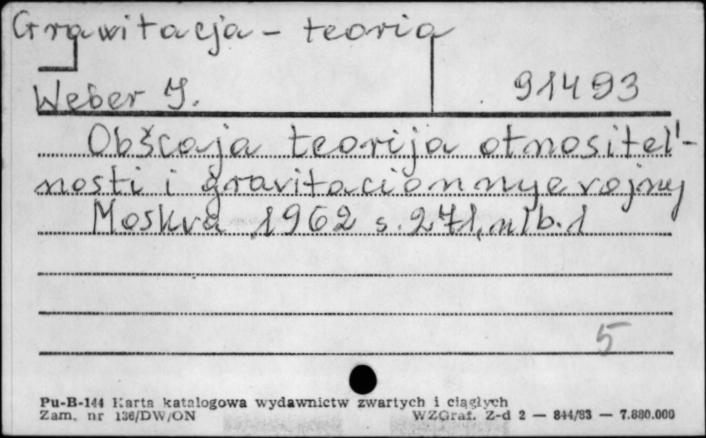 Grawitacja - teoria
Weber J. 91493
Obščaja teorija otnositel'-
nosti i gravitacionnnye vojny
Moskva 1962 s. 271, nlb. 1
5
Pu-B-144 Karta katalogowa wydawnictw zwartych i ciągłych
Zam. nr 136/DW/ON WZGraf. Z-d 2 — 844/83 — 7.880.000